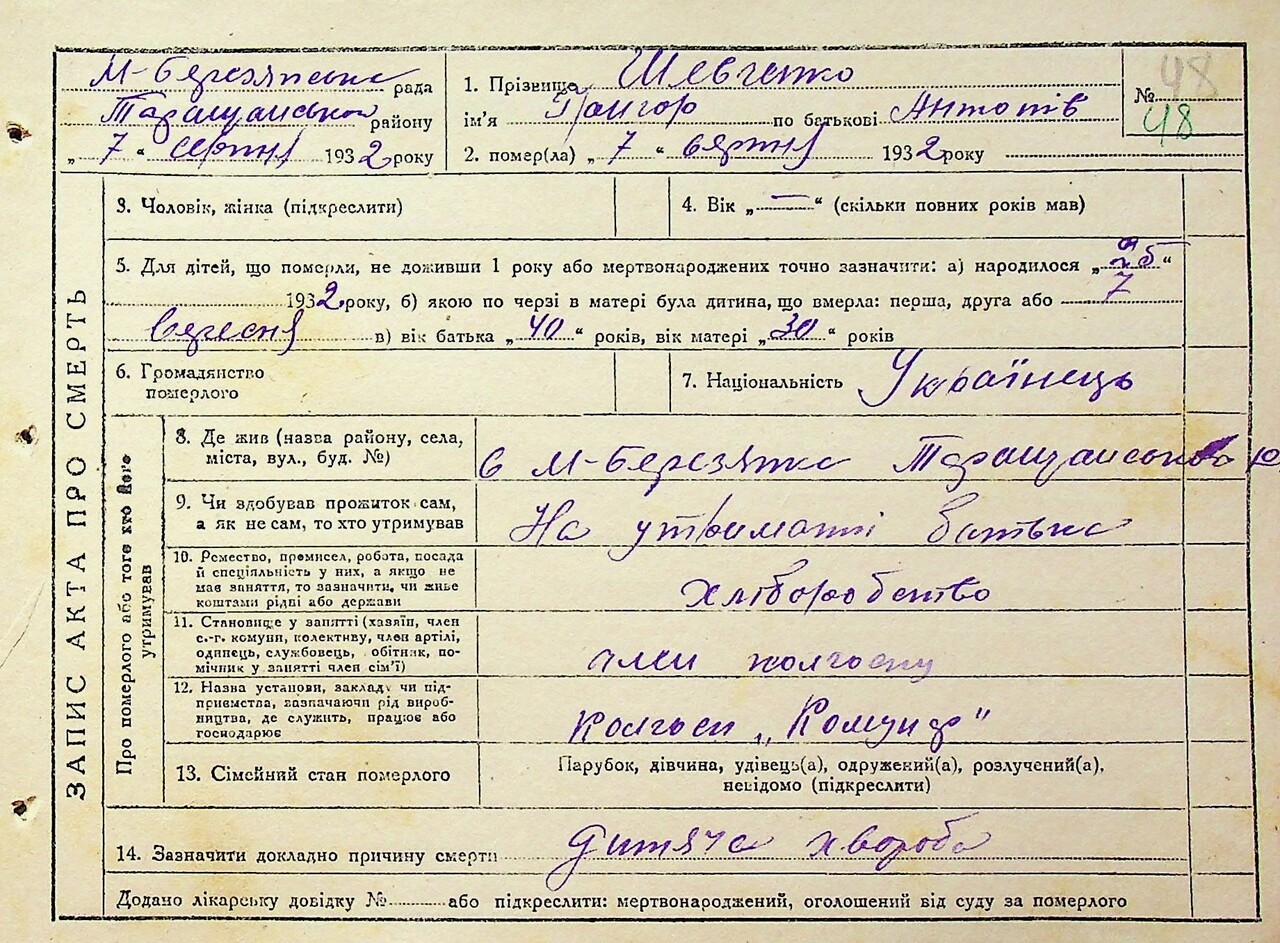 М-Березянська рада
Таращанського району
„ 7 “ серпня 1932 року
1. Прізвище Шевченко
ім'я Григор по батькові Антонів
2. помер(ла) „ 7 “ серпня 1932 року
№ 48
48
ЗАПИС АКТА ПРО СМЕРТЬ
3. Чоловік, жінка (підкреслити)
4. Вік „ — “ (скільки повних років мав)
5. Для дітей, що померли, не доживши 1 року або мертвонароджених точно зазначити: а) народилося „ 25 “
7
1932 року, б) якою по черзі в матері була дитина, що вмерла: перша, друга або
вересня в) вік батька „ 40 “ років, вік матері „ 30 “ років
6. Громадянство
померлого
7. Національність Українець
Про померлого або того хто його
утримував
8. Де жив (назва району, села,
міста, вул., буд. №)
в М-Березянка Таращанського р
9. Чи здобував прожиток сам,
а як не сам, то хто утримував
На утриманні батька
10. Ремество, промисел, робота, посада
й спеціяльність у них, а якщо не
має заняття, то зазначити, чи живе
коштами рідні або держави
хліборобство
11. Становище у занятті (хазяїн, член
с.-г. комуни, колективу, член артілі,
одинець, службовець, обітник, по-
мічник у занятті член сім'ї)
член колгоспу
12. Назва установи, закладу чи під-
приємства, зазначаючи рід вироб-
ництва, де служить, працює або
господарює
Колгосп „Комунар“
13. Сімейний стан померлого
Парубок, дівчина, удівець(а), одружений(а), розлучений(а),
невідомо (підкреслити)
14. Зазначити докладно причину смерти дитяча хвороба
Додано лікарську довідку № або підкреслити: мертвонароджений, оголошений від суду за померлого